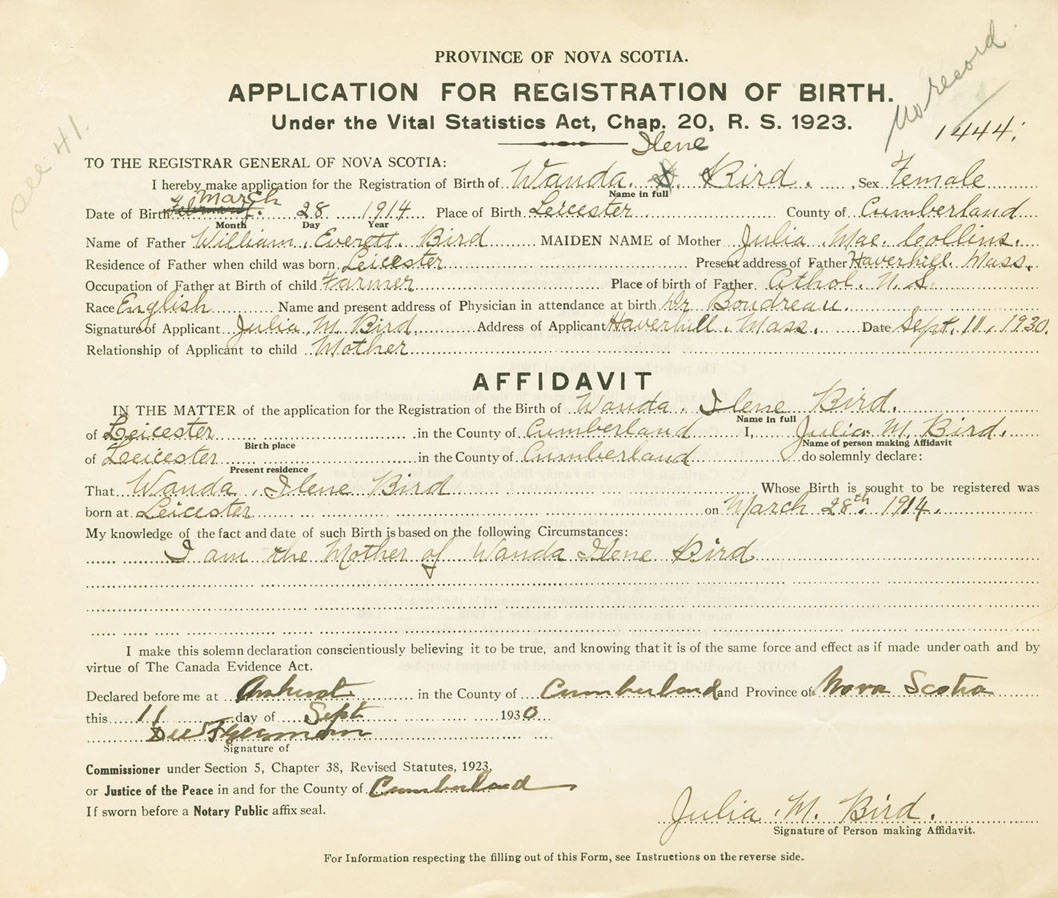 PROVINCE OF NOVA SCOTIA.
no record
APPLICATION FOR REGISTRATION OF BIRTH.
Under the Vital Statistics Act, Chap. 20, R. S. 1923.
1444.
see 41.
TO THE REGISTRAR GENERAL OF NOVA SCOTIA:
Ilene
I hereby make application for the Registration of Birth of Wanda. Bird. , Sex Female
Name in full
March
Date of Birth February. 28 1914 Place of Birth Leicester County of Cumberland
Month Day Year
Name of Father William Everett Bird MAIDEN NAME of Mother Julia Mae Collins.
Residence of Father when child was born Leicester Present address of Father Haverhill, Mass.
Occupation of Father at Birth of child Farmer Place of birth of Father Athol, N.S.
Race English Name and present address of Physician in attendance at birth Dr Boudreau.
Signature of Applicant Julia M. Bird. Address of Applicant Haverhill, Mass. Date Sept. 11, 1930.
Relationship of Applicant to child Mother
AFFIDAVIT
IN THE MATTER of the application for the Registration of the Birth of Wanda Ilene Bird.
Name in full
of Leicester in the County of Cumberland I, Julia M. Bird.
Birth place Name of person making Affidavit
of Leicester in the County of Cumberland do solemnly declare:
Present residence
That Wanda Ilene Bird Whose Birth is sought to be registered was
born at Leicester on March 28th 1914.
My knowledge of the fact and date of such Birth is based on the following Circumstances:
I am the Mother of Wanda Ilene Bird
I make this solemn declaration conscientiously believing it to be true, and knowing that it is of the same force and effect as if made under oath and by
virtue of The Canada Evidence Act.
Declared before me at Amherst in the County of Cumberland and Province of Nova Scotia
this 11 day of Sept 1930
Signature of
Commissioner under Section 5, Chapter 38, Revised Statutes, 1923,
or Justice of the Peace in and for the County of Cumberland
If sworn before a Notary Public affix seal.
Julia M. Bird.
Signature of Person making Affidavit.
For Information respecting the filling out of this Form, see Instructions on the reverse side.